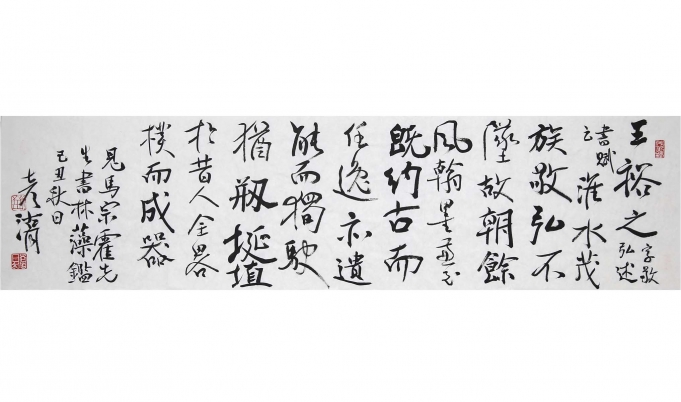 王裕之 字敬
弘 述
書賦
云 淮水茂
族敬弘不
墜故朝餘
風翰墨兼至
既約古而
任逸亦遺
能而獨駛
猶埏埴
於昔人全畧
樸而成器
見馬宗霍先
生書林藻鑑
己丑秋日